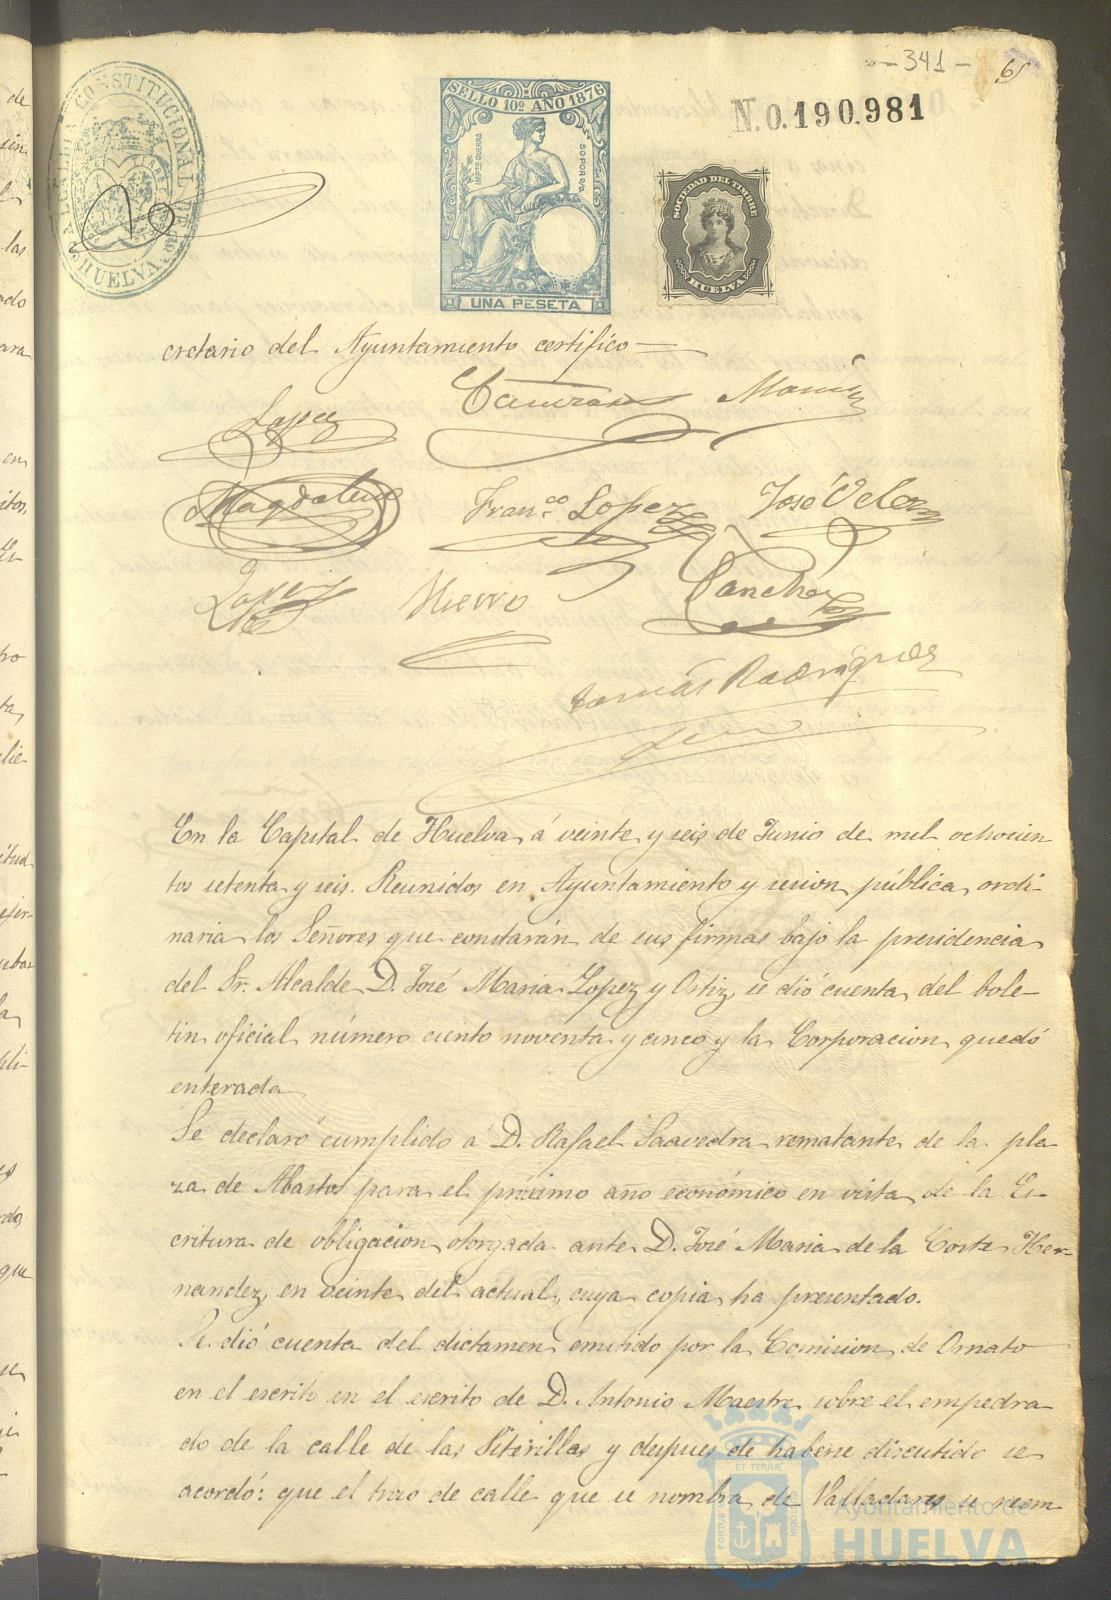 - 341 -
65
ALCALDIA CONSTITUCIONAL DE HUELVA
SELLO 10º AÑO 1876
UNA PESETA
N. 0.190.981
SOCIEDAD DEL TIMBRE
HUELVA
cretario del Ayuntamiento certifico =
Lopez
Magdalena
Franco. Lopez
José Velez
Lopez
Hierro
Sanchez
Tomás Rodriguez
En la Capital de Huelva á veinte y seis de Junio de mil ochocien
tos setenta y seis. Reunidos en Ayuntamiento y sesion pública ordi-
naria los Señores que constarán de sus firmas bajo la presidencia
del Sr. Alcalde D. José Maria Lopez y Ortiz, se dió cuenta del bole-
tin oficial número ciento noventa y cinco y la Corporacion quedó
enterada
Se declaró cumplido á D. Rafael Saavedra rematante de la pla
za de Abasto para el próximo año económico en vista de la Es-
critura de obligacion otorgada ante D. José Maria de la Corte Her-
nandez, en veinte del actual, cuya copia ha presentado.
Se dió cuenta del dictamen emitido por la Comision de Ornato
en el escrito en el escrito de D. Antonio Maestre sobre el empedra
do de la calle de las Piterillas y despues de haberse discutido se
acordó: que el trozo de calle que se nombra de Valladares se reem
Ayuntamiento de
HUELVA